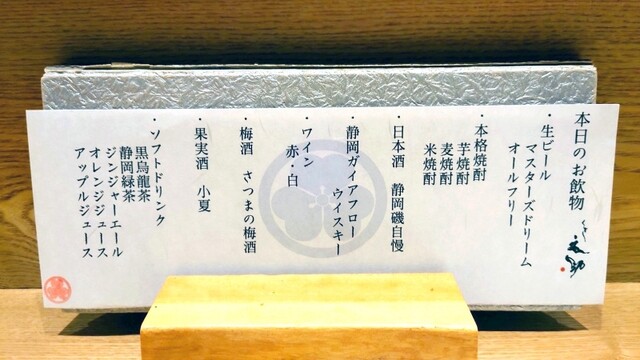 本日のお飲物
・生ビール
マスターズドリーム
オールフリー
・本格焼酎
芋焼酎
麦焼酎
米焼酎
・日本酒　静岡磯自慢
・静岡ガイアフロー
ウイスキー
・ワイン
赤・白
・梅酒　さつまの梅酒
・果実酒　小夏
・ソフトドリンク
黒烏龍茶
静岡緑茶
ジンジャーエール
オレンジジュース
アップルジュース